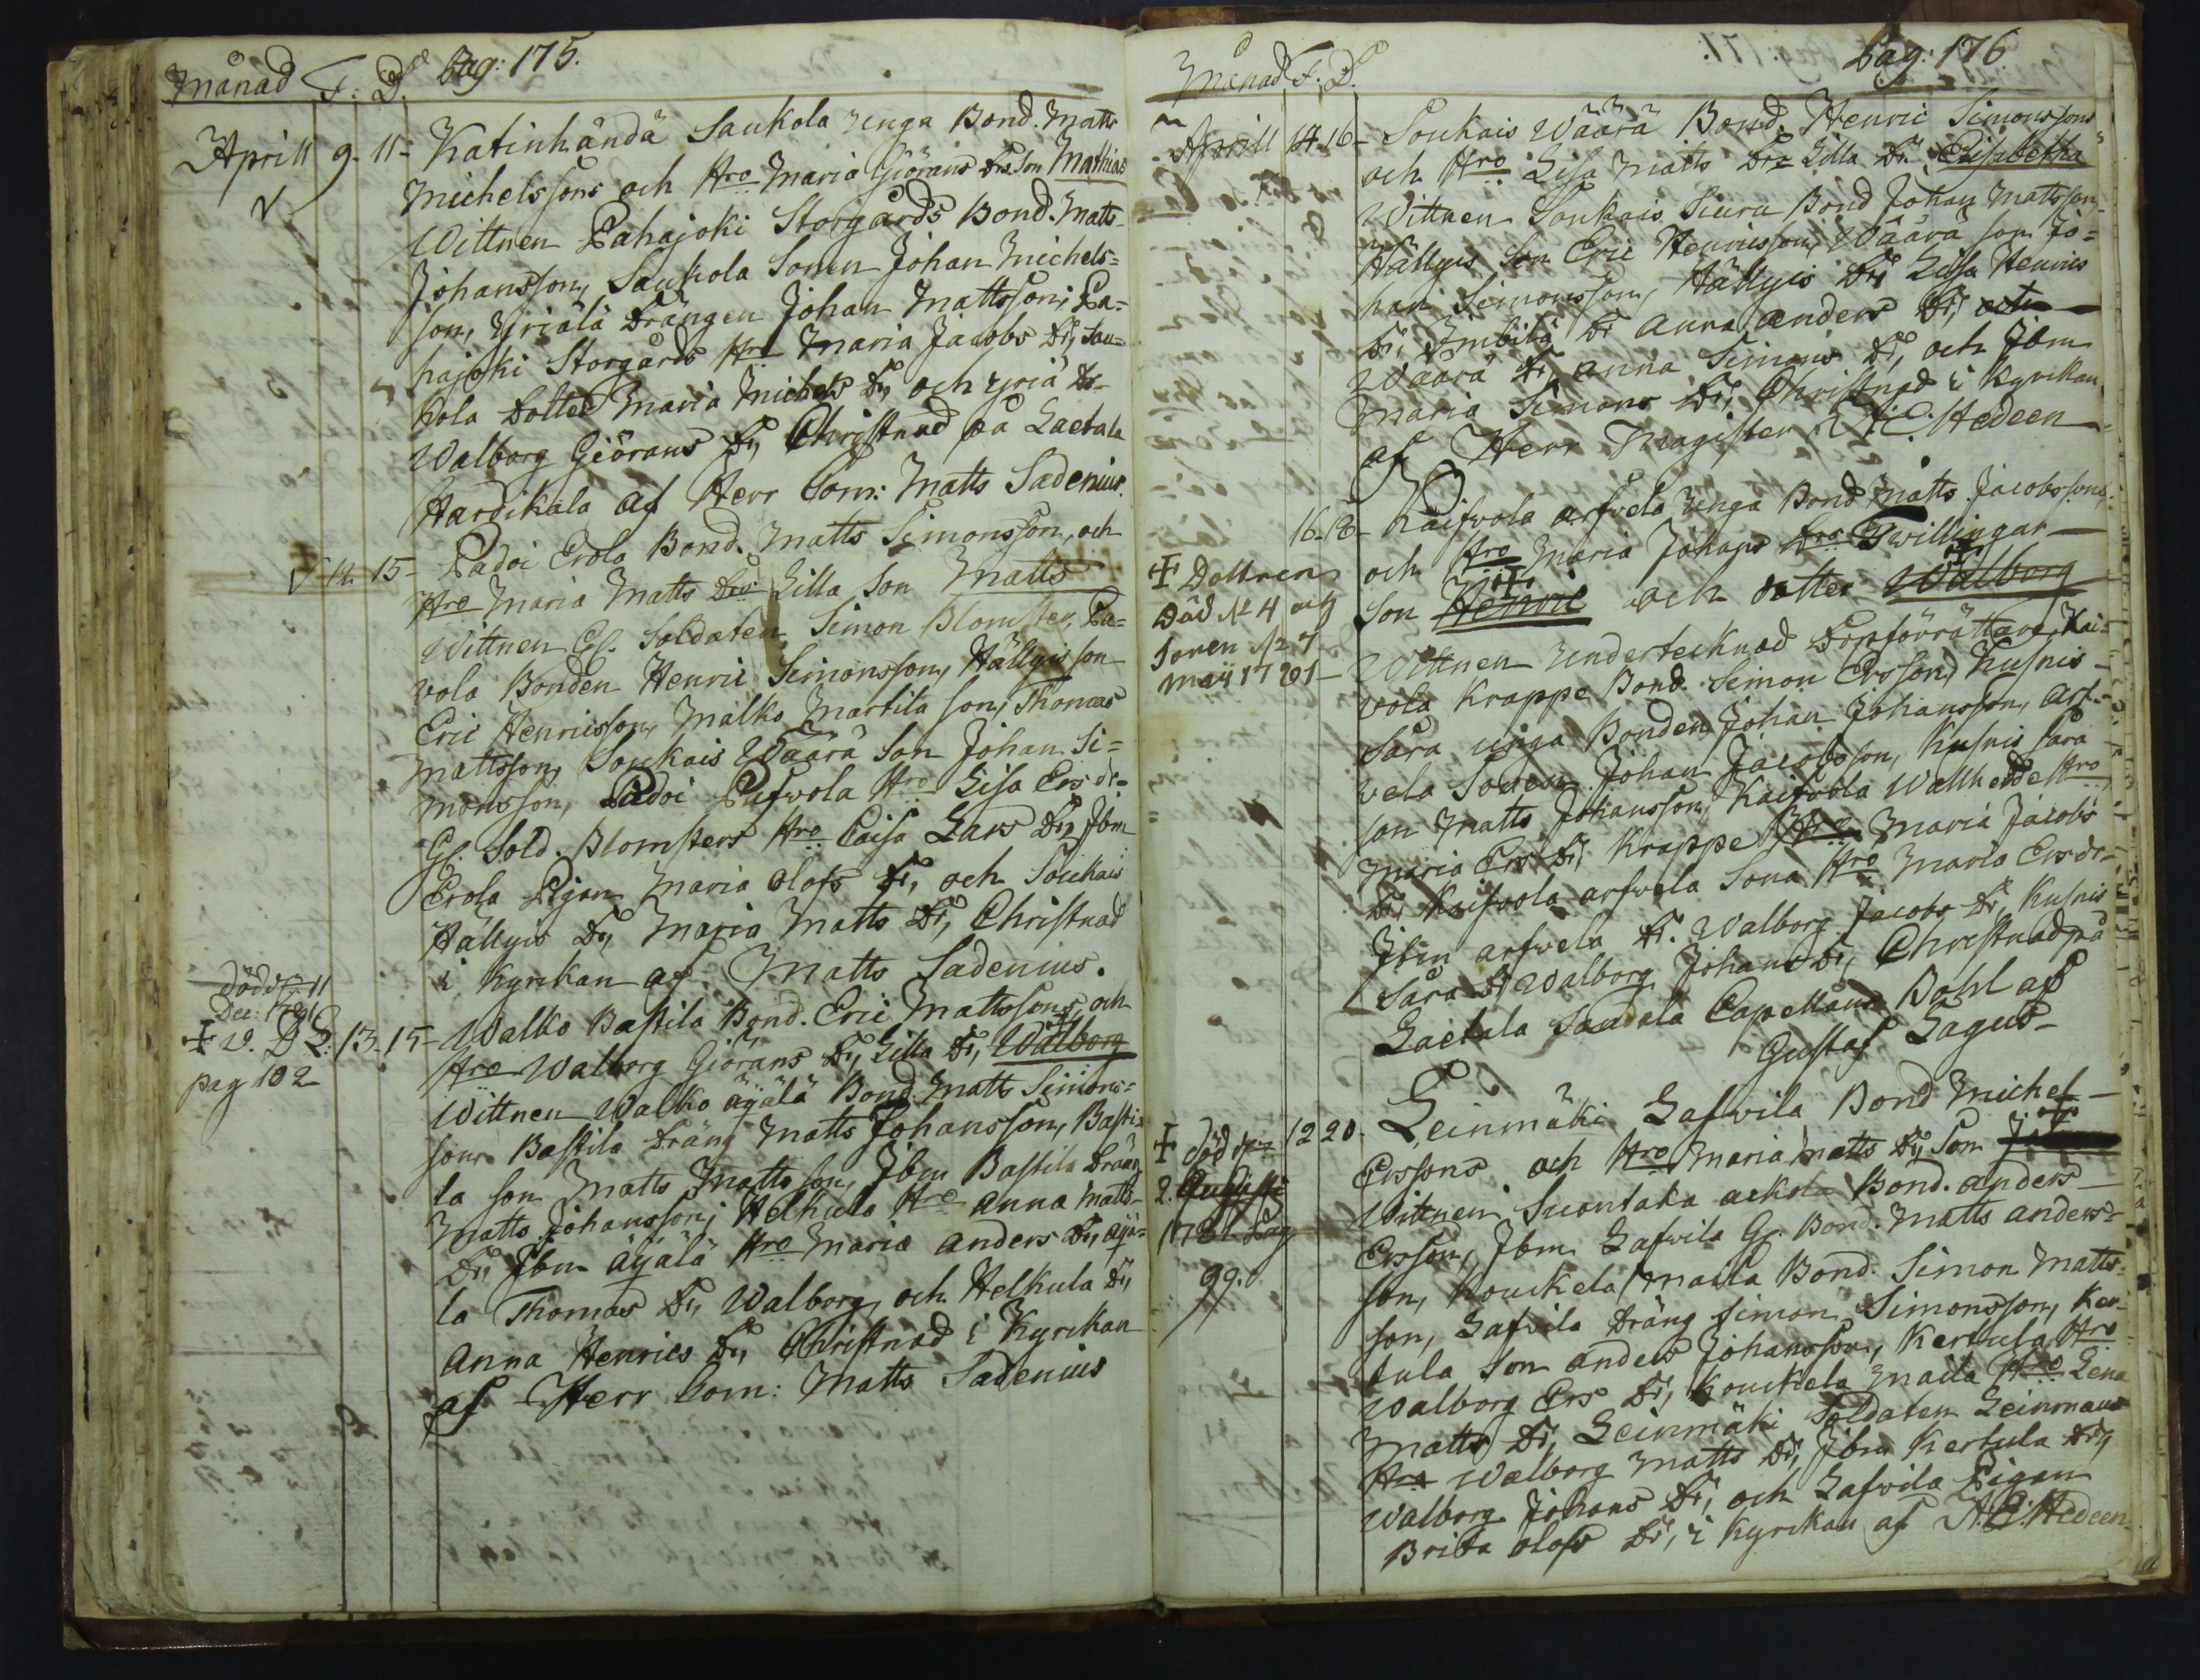 Månad F. D. Pag: 175.
Aprill 9. 11- Katinhändä Saukola Unga Bond. Matts
Michelssons och Hro Maria Giörans Drs Son Mathias
Wittnen Pahajoki Storgårds Bond. Matts
Johansson, Saukola Sonen Johan Michels=
son, Yriälä Drängen Johan Mattsson, Pa=
hajoki Storgårds Hro Maria Jacobs Dr, Sau=
kola Dotter Maria Michels Dr, och Yriä Dr
Walborg Giörans Dr, Christnad på Laetala
Hardikala af Herr Com: Matts Sadenius.
12 15- Padoi Erola Bond. Matts Simonsson, och
Hro Maria Matts Dr Lilla Son Matts
Wittnen Gl. Soldaten Simon Blomster, Pa=
vola Bonden Henric Simonsson, Hällyis son
Eric Henricsson, Malko Martila son, Thomas
Mattsson, Soukais Wäärä Son Johan Si=
monsson, Padoi Pufvola Hro Lisa Ers dr
Gl. Sold. Blomsters Hro Caisa Lars Dr, Jbm
Erola Pigan Maria Olofs Dr, och Soukais
Hällyis Dr, Maria Matts Dr, Christnad
i Kyrkan af Matts Sadenius.
död d. 11
Dec: 1781
v. D L:
pag 102
13-15- Walko Bastila Bond. Eric Mattssons, och
Hro Walborg Giörans Dr, Lilla Dr, Walborg
Wittnen Walko äyälä Bond. Matts Simons=
sons Bastila Dräng Matts Johansson, Basti=
la son Matts Mattsson, Jbm Bastila Dräng
Matts Johansson, Helkula Hro Anna Matts
Dr, Jbm äyälä Hro Maria Anders Dr, äyä=
la Thomas Dr, Walborg, och Helkula Dr,
Anna Henrics Dr, Christnad i Kyrkan
af Herr Com: Matts Sadenius
Månad F. D. Pag: 176
Aprill 14-16- Soukais Wäärä Bond. Henric Simonssons
och Hro Lisa Matts Drs Lilla Dr Elisabetha
Wittnen Soukais Siura Bond Johan Mattsson,
Hällyis Son Eric Henricsson, Wäärä son Jo=
han Simonsson, Hällyis Dr Lisa Henrics
Dr, Dr Anna Anders Dr, och
Wäärä Dr, Anna Simons Dr, och Jbm
Maria Simons Dr, Christnad i Kyrkan
af Herr Magister Hedeen
16-18- Kaifvola arfvela Unga Bond Matts Jacobssons,
och Hro Maria Johans Dro Twillingar
Son Henric och dotter Walborg
Dottren
död 4
Sonen 7
Maji 1781
Wittnen Undertecknad Kai=
vola Krappe Bond. Simon Ersson, Kusnis
Sara unga Bonden Johan Johansson, Arf=
vela Sonen Johan Jacobsson, Kusnis Sara
son Matts Johansson, Kaifvola Hro
Maria Ers Dr, Krappe Hro Maria Jacobs
Dr, Kaifvola arfvela Sona Hro Maria Ers dr
Jbm arfvela Dr. Walborg Jacobs Dr, Kusnis
Sara Dr Walborg Johans Dr, Christnad på
Laetala Saudala Capellans Bohl af
Gustaf Lagus
död
2. Augusti
1781 Pag
99.
12 20- Leinmäki Lafvila Bond Michel
Erssons och Hro Maria Matts Dr, Son
Wittnen Suontaka Bond. Anders
Ersson, Jbm Lafvila Gl. Bond. Matts Anders=
son, Kouckela Maila Bond. Simon Matts=
son, Lafvila Dräng Simon Simonsson, Ker=
tula Son Anders Johansson, Kertula Hro
Walborg Ers Dr, Kouckela Maila Hro Lena
Matts Dr, Leinmäki Soldaten Leinmans
Hro Walborg Matts Dr, Jbm Kertula Dr,
Walborg Johans Dr, och Lafvila Pigan
Brita Olofs Dr, i Kyrkan af Hedeen